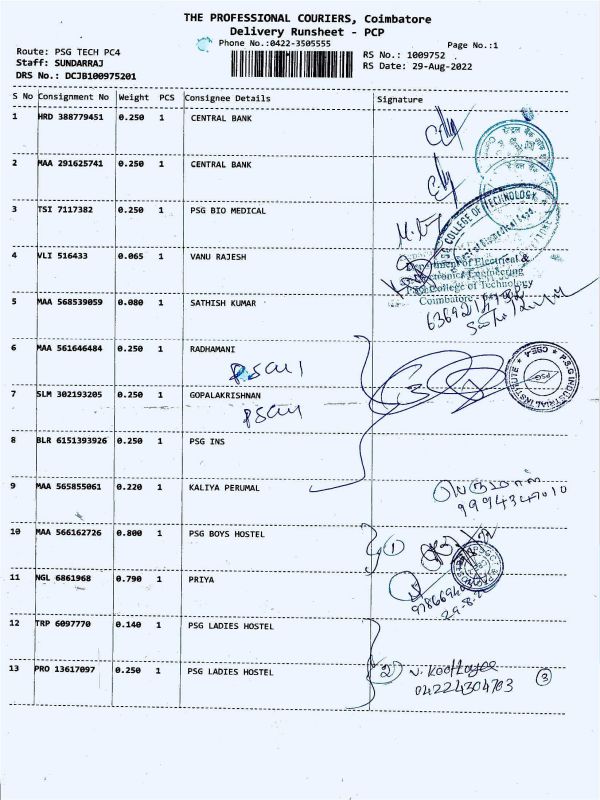 THE PROFESSIONAL COURIERS, Coimbatore
Delivery Runsheet - PCP
Phone No.:0422-3505555
Page No.:1
Route: PSG TECH PC4
RS No.: 1009752
Staff: SUNDARRAJ
RS Date: 29-Aug-2022
DRS No.: DCJB100975201
S No Consignment No Weight PCS Consignee Details Signature
1 HRD 388779451 0.250 1 CENTRAL BANK
2 MAA 291625741 0.250 1 CENTRAL BANK
3 TSI 7117382 0.250 1 PSG BIO MEDICAL
COLLEGE OF TECHNOLOGY
4 VLI 516433 0.065 1 VANU RAJESH
Department of Electrical &
Electronics Engineering
PSG College of Technology
Coimbatore
5 MAA 568539059 0.080 1 SATHISH KUMAR
6 MAA 561646484 0.250 1 RADHAMANI
P.S.G INDUSTRIAL INSTITUTE
PSG
7 SLM 302193205 0.250 1 GOPALAKRISHNAN
8 BLR 6151393926 0.250 1 PSG INS
9 MAA 565855061 0.220 1 KALIYA PERUMAL
9994347010
10 MAA 566162726 0.800 1 PSG BOYS HOSTEL
1
11 NGL 6861968 0.790 1 PRIYA
12 TRP 6097770 0.140 1 PSG LADIES HOSTEL
13 PRO 13617097 0.250 1 PSG LADIES HOSTEL
2
04224304703
3